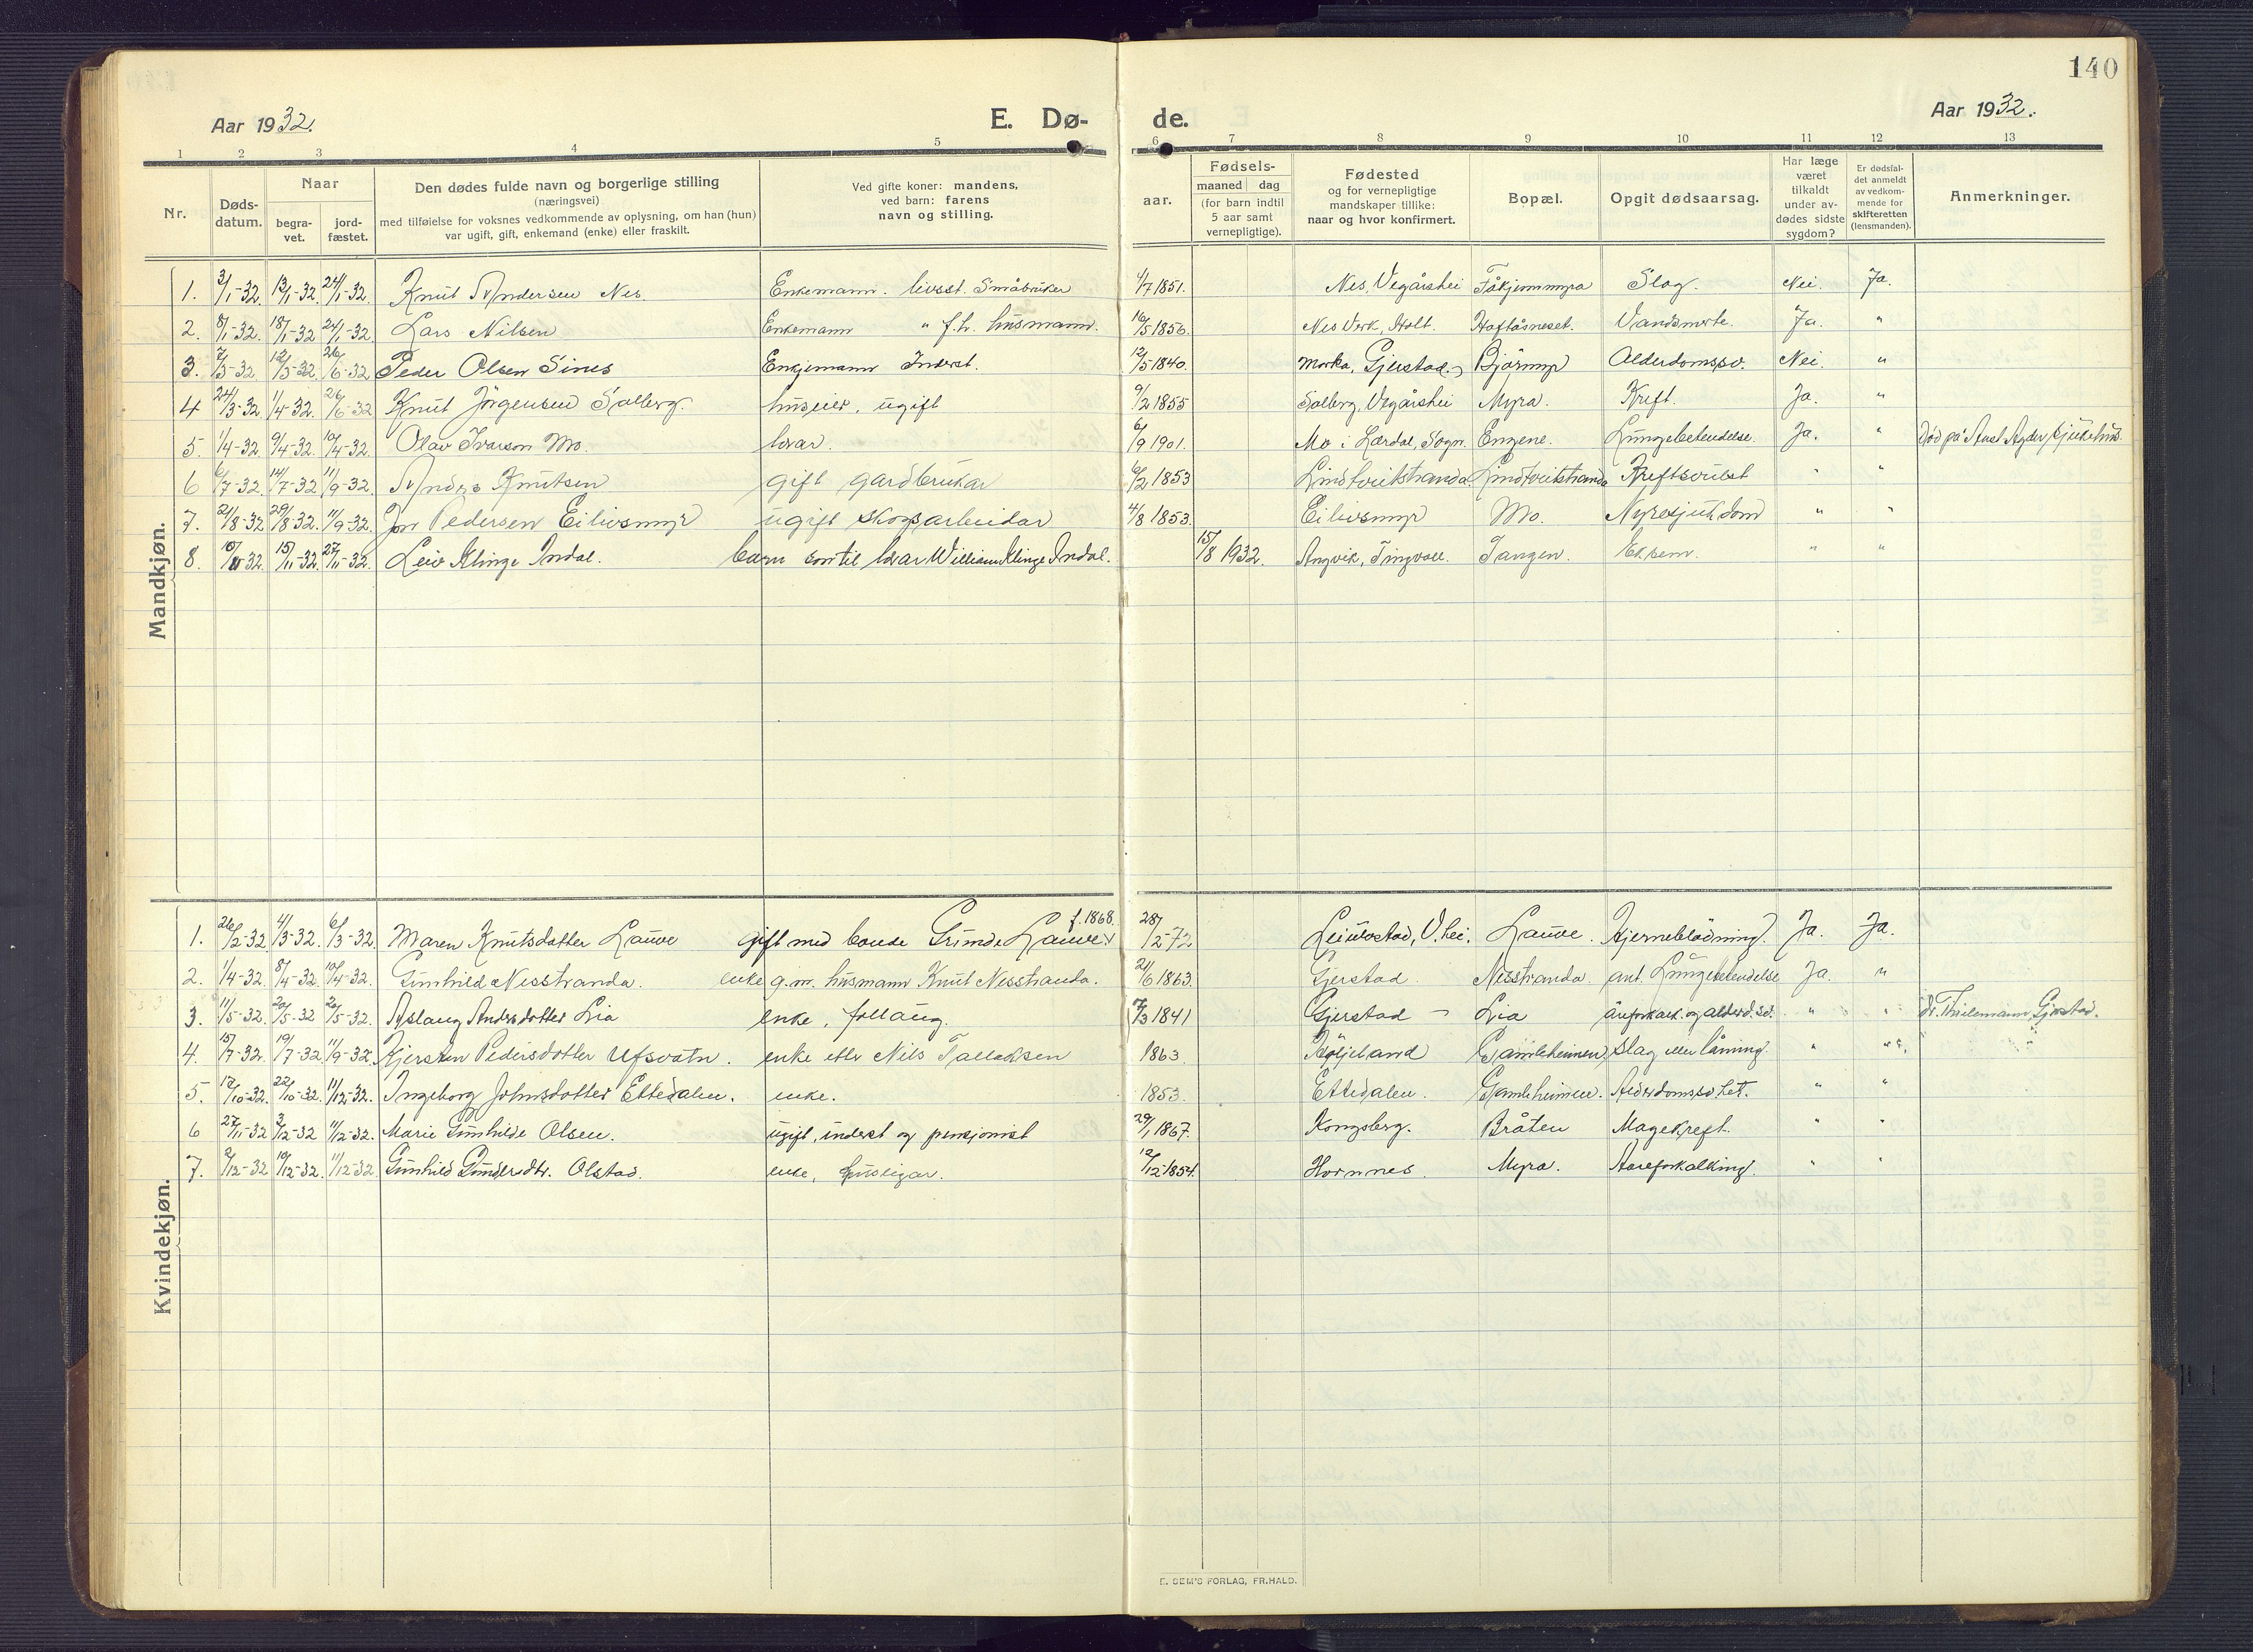 140
Aar 1932.
E. Dø-
de.
Aar 1932.
1 2 3 4 5 6 7 8 9 10 11 12 13
Nr.
Døds-
datum.
Naar
begra-
vet.
jord-
fæstet.
Den dødes fulde navn og borgerlige stilling
(næringsvei)
med tilføielse for voksnes vedkommende av oplysning, om han (hun)
var ugift, gift, enkemand (enke) eller fraskilt.
Ved gifte koner: mandens,
ved barn: farens
navn og stilling.
Fødsels-
aar.
maaned dag
(for barn indtil
5 aar samt
vernepligtige).
Fødested
og for vernepligtige
mandskaper tillike:
naar og hvor konfirmert.
Bopæl.
Opgit dødsaarsag.
Har læge
været
tilkaldt
under av-
dødes sidste
sygdom?
Er dødsfal-
det anmeldt
av vedkom-
mende for
skifteretten
(lensmanden).
Anmerkninger.
Mandkjøn.
1. 3/1-32. 13/1-32. 24/1-32. Knut Andersen Nes. Enkemann. livsst. Småbruker 4/7 1851. Nes, Vegårshei Slag. Nei. Ja.
2. 8/1-32. 18/1-32 24/1-32. Lars Nilsen Enkemann " f.h. husmann. 16/5 1856. Nes Verk, Holt. Haftåsneset. Vandsmerte. Ja. "
3. 7/3-32. 12/3-32. 26/6-32 Peder Olsen Sines Enkjemann Inderst. 12/5 1840. Morka, Gjerstad. Bjørmyr Alderdomssv. Nei. "
4 24/3-32. 1/4-32. 26/6-32 Knut Jörgensen Salberg. huseier, ugift 9/2 1855 Salberg, Vegårshei Myra. Kreft. Ja. "
5. 1/4-32. 9/4-32. 10/4-32. Olav Ivarson Mo. lærar. 6/9 1901. Mo i Lærdal, Sogn. Engene. Lungebetendelse. Ja. " Død på Aust Agder sjukehus.
6 6/7-32. 14/7-32 11/9-32. Anders Knutsen gift gardbrukar 6/2 1853 Lindtveitstranda Lindtveitstranda Kreftsvulst " "
7. 21/8-32 29/8-32. 11/9-32. Jon Pedersen Eilivsmyr ugift skogsarbeidar 4/8 1853. Eilivsmyr Mo. Nyresjukdom " "
8. 10/11 32. 15/11-32. 27/11-32. Leiv Klinge Indal. barn son til lærar William Klinge Indal. 15/8 1932. Angvik, Tingvoll. Tangen. Eksem. " "
Kvindekjøn.
1. 26/2-32 4/3-32. 6/3-32. Maren Knutsdatter Lauve gift med bonde Grunde Lauve f. 1868. 28/12-72 Leiulvstad, V.hei. Lauve. Hjerneblödning. Ja. Ja.
2. 1/4-32. 8/4-32. 10/4-32. Gunhild Nesstranda. enke g.m. husmann Knut Nesstranda. 21/6 1863. Gjerstad Nesstranda. ant. Lungebetendelse Ja. "
3. 11/5-32. 20/5-32 20/5-32. Aslaug Andersdotter Lia enke, follaug. 7/3 1841 Gjerstad - Lia åreforkalk. og alderd.sv. " " dr. Thielemann, Gjerstad.
4. 15/7-32. 19/7-32 11/9-32. Kjersten Pedersdotter Ufsvatn. enke etter Nils Tallaksen 1863. Gamleheimen Slag eller låming. " " "
5. 12/10-32. 22/10-32. 11/12-32. Ingeborg Johnsdotter Ettedalen. enke. 1853. Ettedalen. Gamleheimen. Alderdomssv.het. " "
6 27/11-32 3/12-32 11/12-32. Marie Gunhilde Olsen. ugift, inderst og pensjonist 29/1 1867. Kongsberg. Bråten Magekreft. " "
7. 2/12-32 10/12-32. 11/12-32 Gunhild Gundersdtr. Olstad. enke, huseigar. 12/12 1854. Hornnes Myra. Aareforkalking. " "
E. SEM'S FORLAG, FR.HALD.